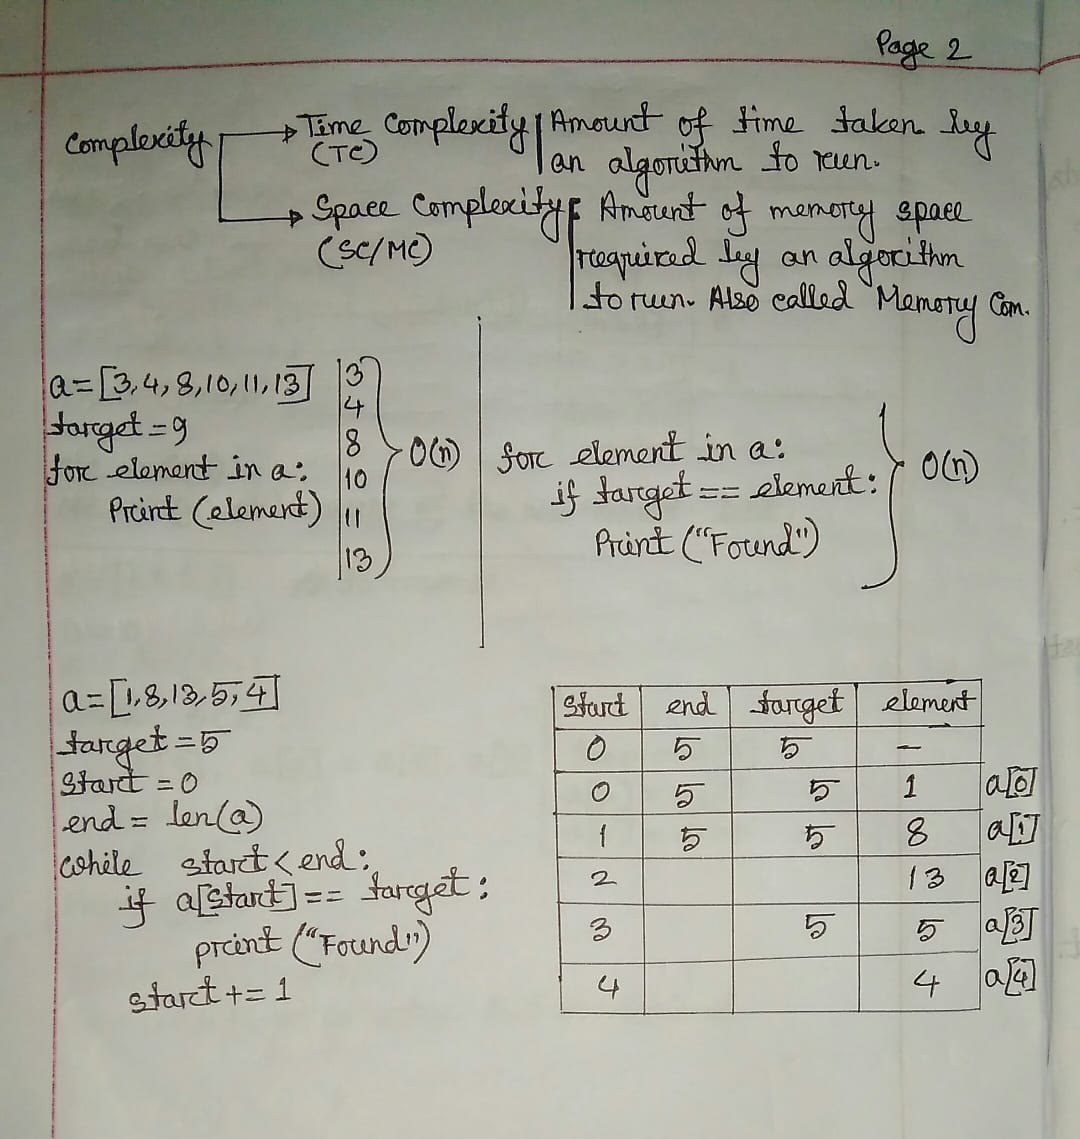 Page 2
Complexity → Time Complexity Amount of time taken by
(TC) an algorithm to run.
→ Space Complexity Amount of memory space
(SC/MC) required by an algorithm
to run. Also called Memory Com.
a=[3,4,8,10,11,13]
target = 9
for element in a:
Print (element)
3
4
8
10
11
13
O(n)
for element in a:
if target == element:
Print ("Found")
O(n)
a=[1,8,13,5,4]
target = 5
Start = 0
end = len(a)
while start < end:
if a[start] == target:
print ("Found")
start += 1
Start end target element
0 5 5 —
0 5 5 1 a[0]
1 5 5 8 a[1]
2 13 a[2]
3 5 5 a[3]
4 4 a[4]